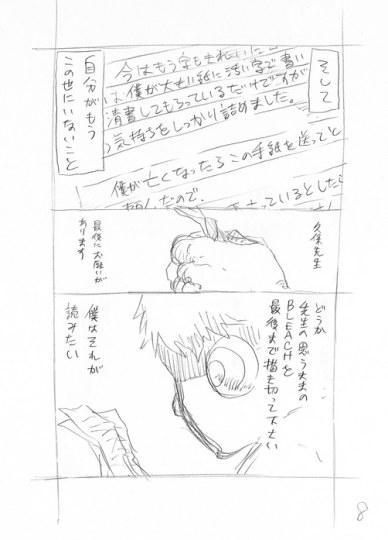 そして
今はもう字もきれいに
は僕が大きい紙に汚い字で書い
清書してもらっているだけですが
気持ちをしっかり詰めました。
僕が亡くなったらこの手紙を送ってと
ので、
っているとしたら
自分がもう
この世にいないこと
久保先生
最後にお願いが
あります
どうか
先生の思う丈の
BLEACHを
最後まで描き切って下さい
僕はそれが
読みたい
8